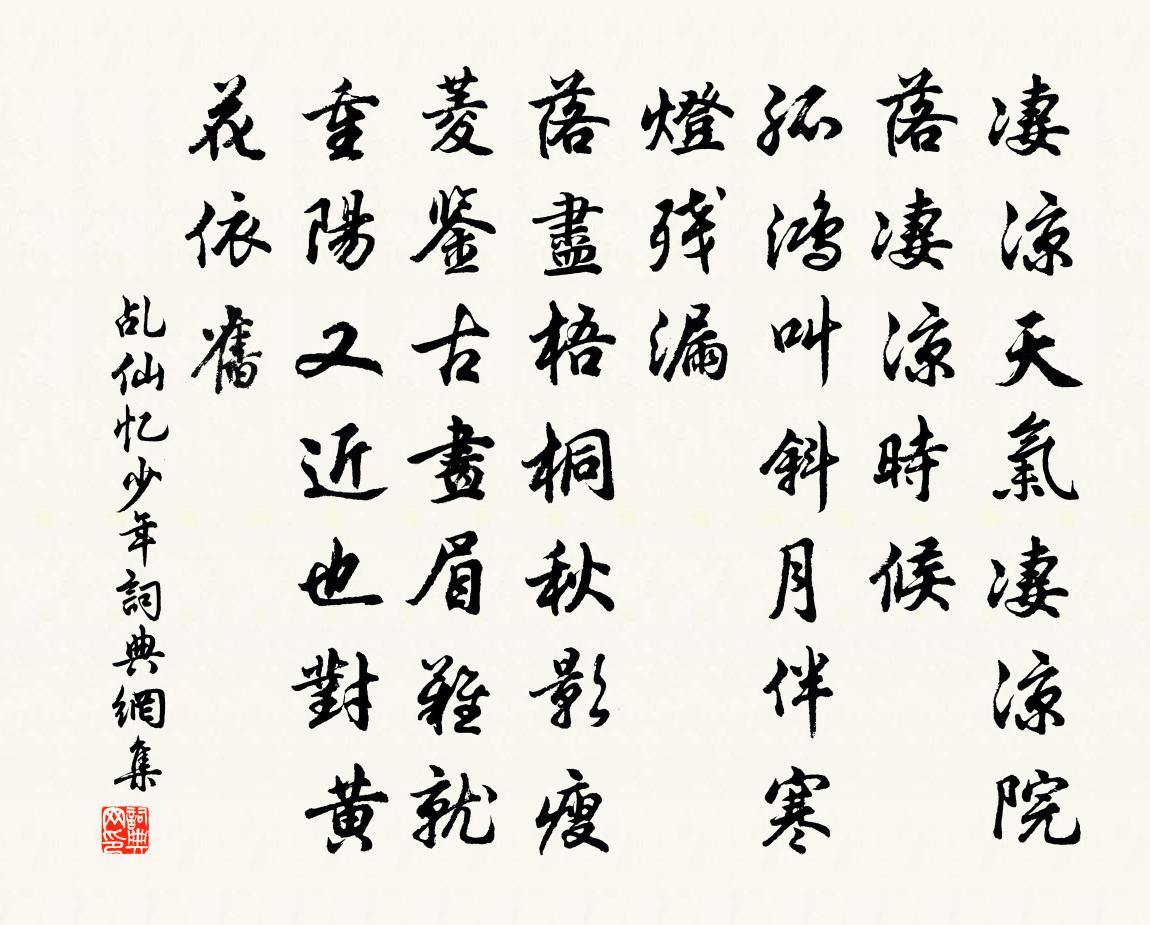 凄涼天氣凄涼院
落凄涼時候
孤鴻叫斜月伴寒
燈残漏
落盡梧桐秋影瘦
菱鉴古畫眉難就
重陽又近也對黄
花依舊
乩仙忆少年詞典網集
詞典網印